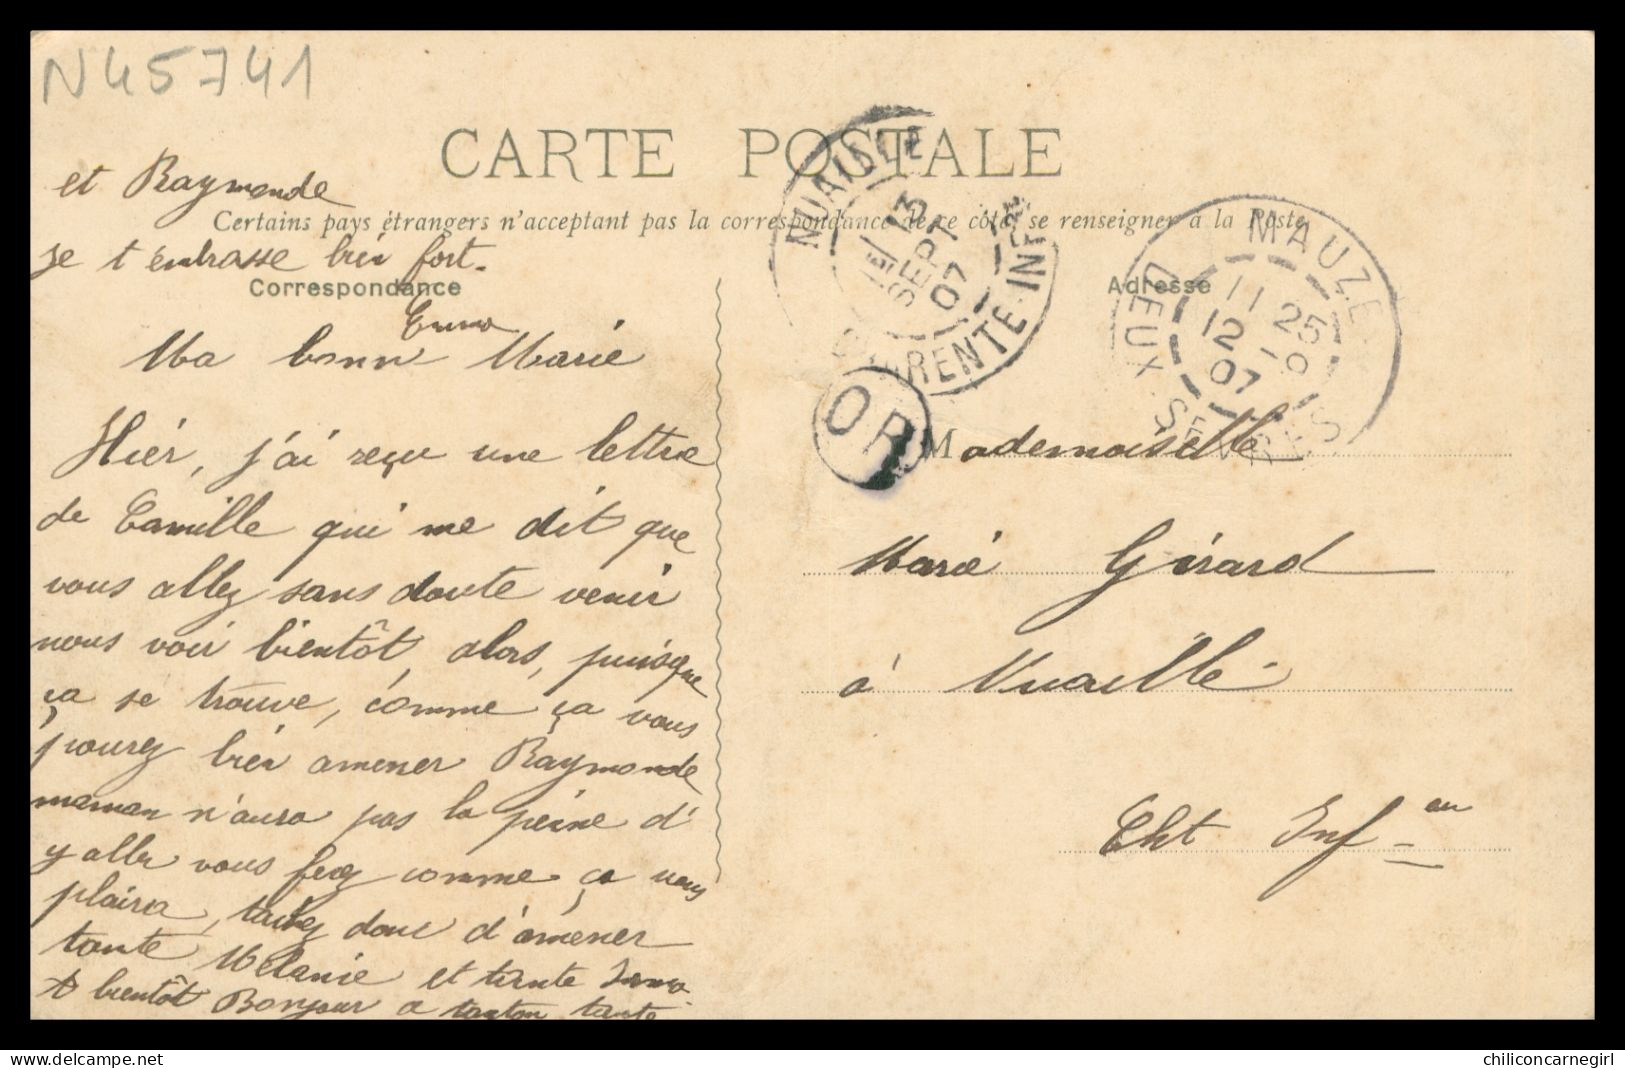 N45741
CARTE POSTALE
et Raymonde
Certains pays étrangers n'acceptant pas la correspondance de ce côté, se renseigner à la Poste
je t'embrasse bien fort.
Correspondance
Emma
Ma bonne Marie
Hier, j'ai reçu une lettre
de Camille qui me dit que
vous allez sans doute venir
nous voir bientôt, alors, puisque
ça se trouve, comme ça vous
pourez bien amener Raymonde
maman n'aura pas la peine d'
y aller vous ferez comme ça vous
plaira, tachez donc d'amener
tante Mélanie et tante
A bientôt Bonjour a tonton tante
NUAILLE
13
SEPT
07
CHARENTE-INFRE
MAUZE
11 25
12 9
07
DEUX-SEVRES
OR
Adresse
Mademoiselle
Marie Girard
à Nuaillé
Cht Inf
chiliconcarnegirl